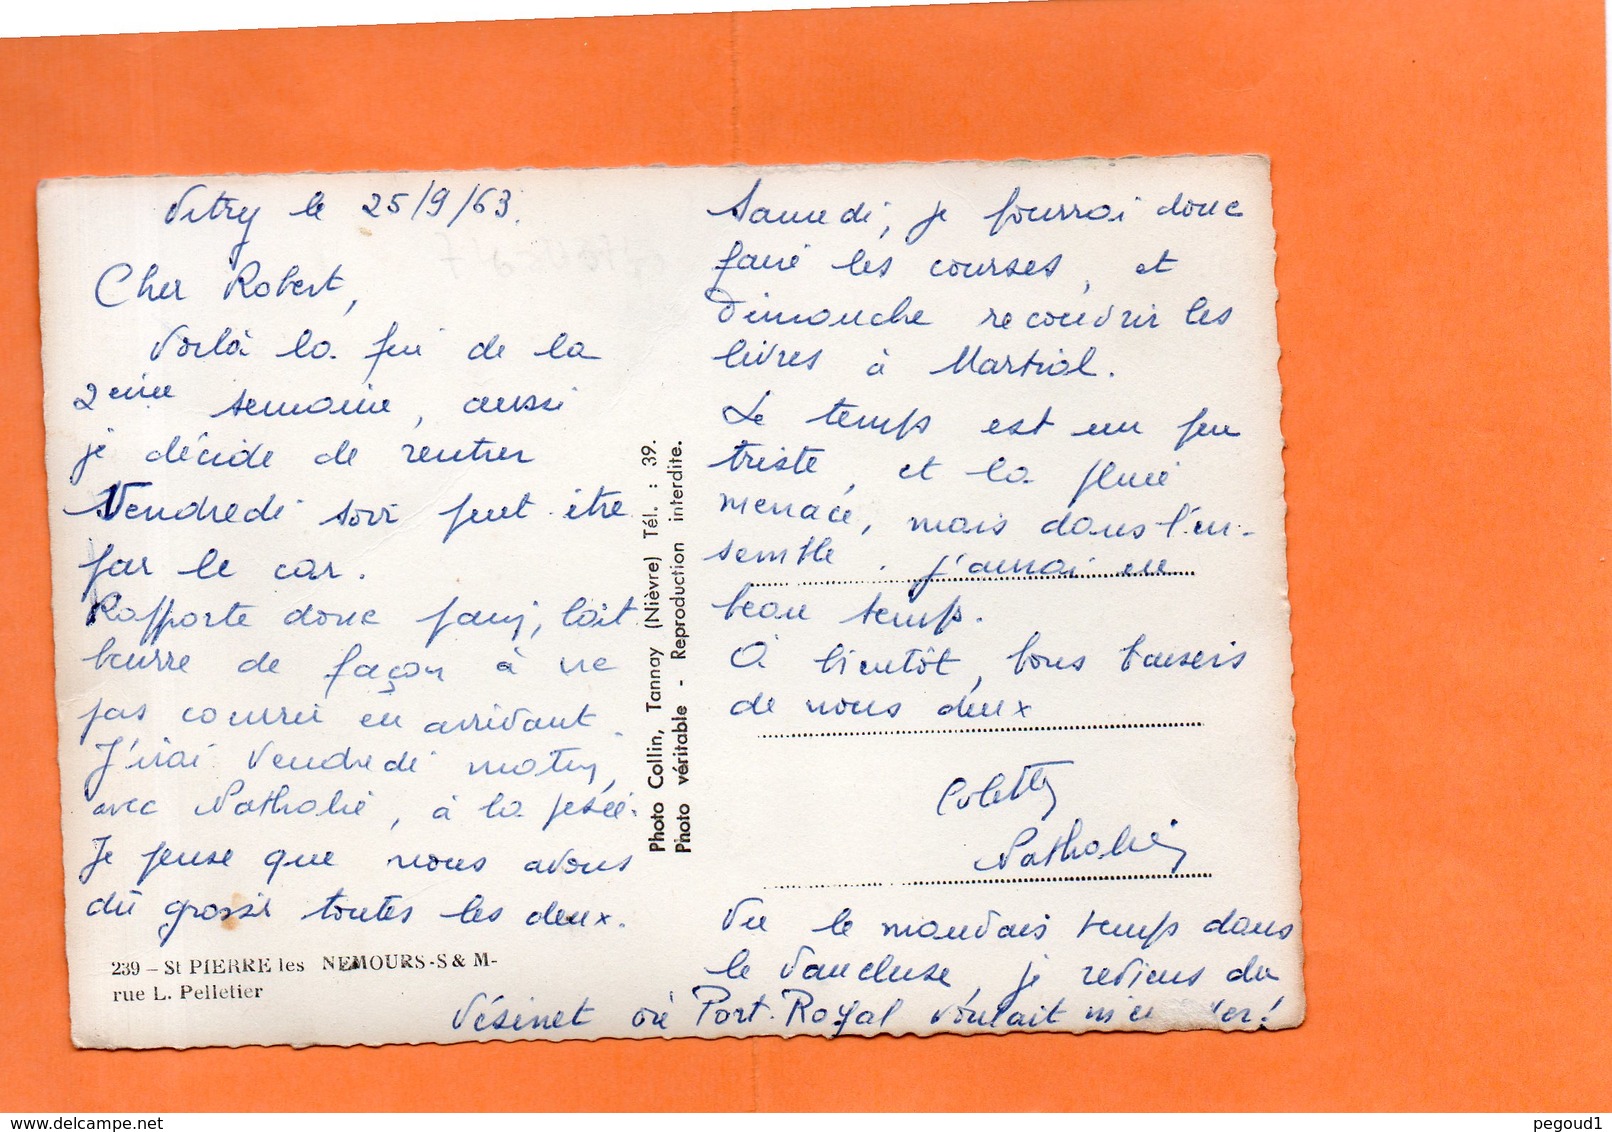 Vitry le 25/9/63.
Cher Robert,
Voilà la fin de la
2eme semaine, aussi
je décide de rentrer
Vendredi soir peut être
par le car.
Rapporte donc pain, lait
beurre de façon à ne
pas courrir en arrivant.
J'irai Vendredi matin,
avec Nathalie, à la pesée.
Je pense que nous avons
dû grossir toutes les deux.
239 - St PIERRE les NEMOURS-S & M-
rue L. Pelletier
Photo Collin, Tannay (Nièvre) Tél. : 39.
Photo véritable - Reproduction interdite.
Samedi, je pourrai donc
faire les courses, et
Dimanche recouvrir les
livres à Martial.
Le temps est un peu
triste, et la pluie
menace, mais dans l'en-
semble. j'aurai eu
beau temps.
A bientôt, bons baisers
de nous deux
Colette
Nathalie
Vu le mauvais temps dans
le Vaucluse, je reviens du
Vésinet où Port-Royal voulait
pegoud1